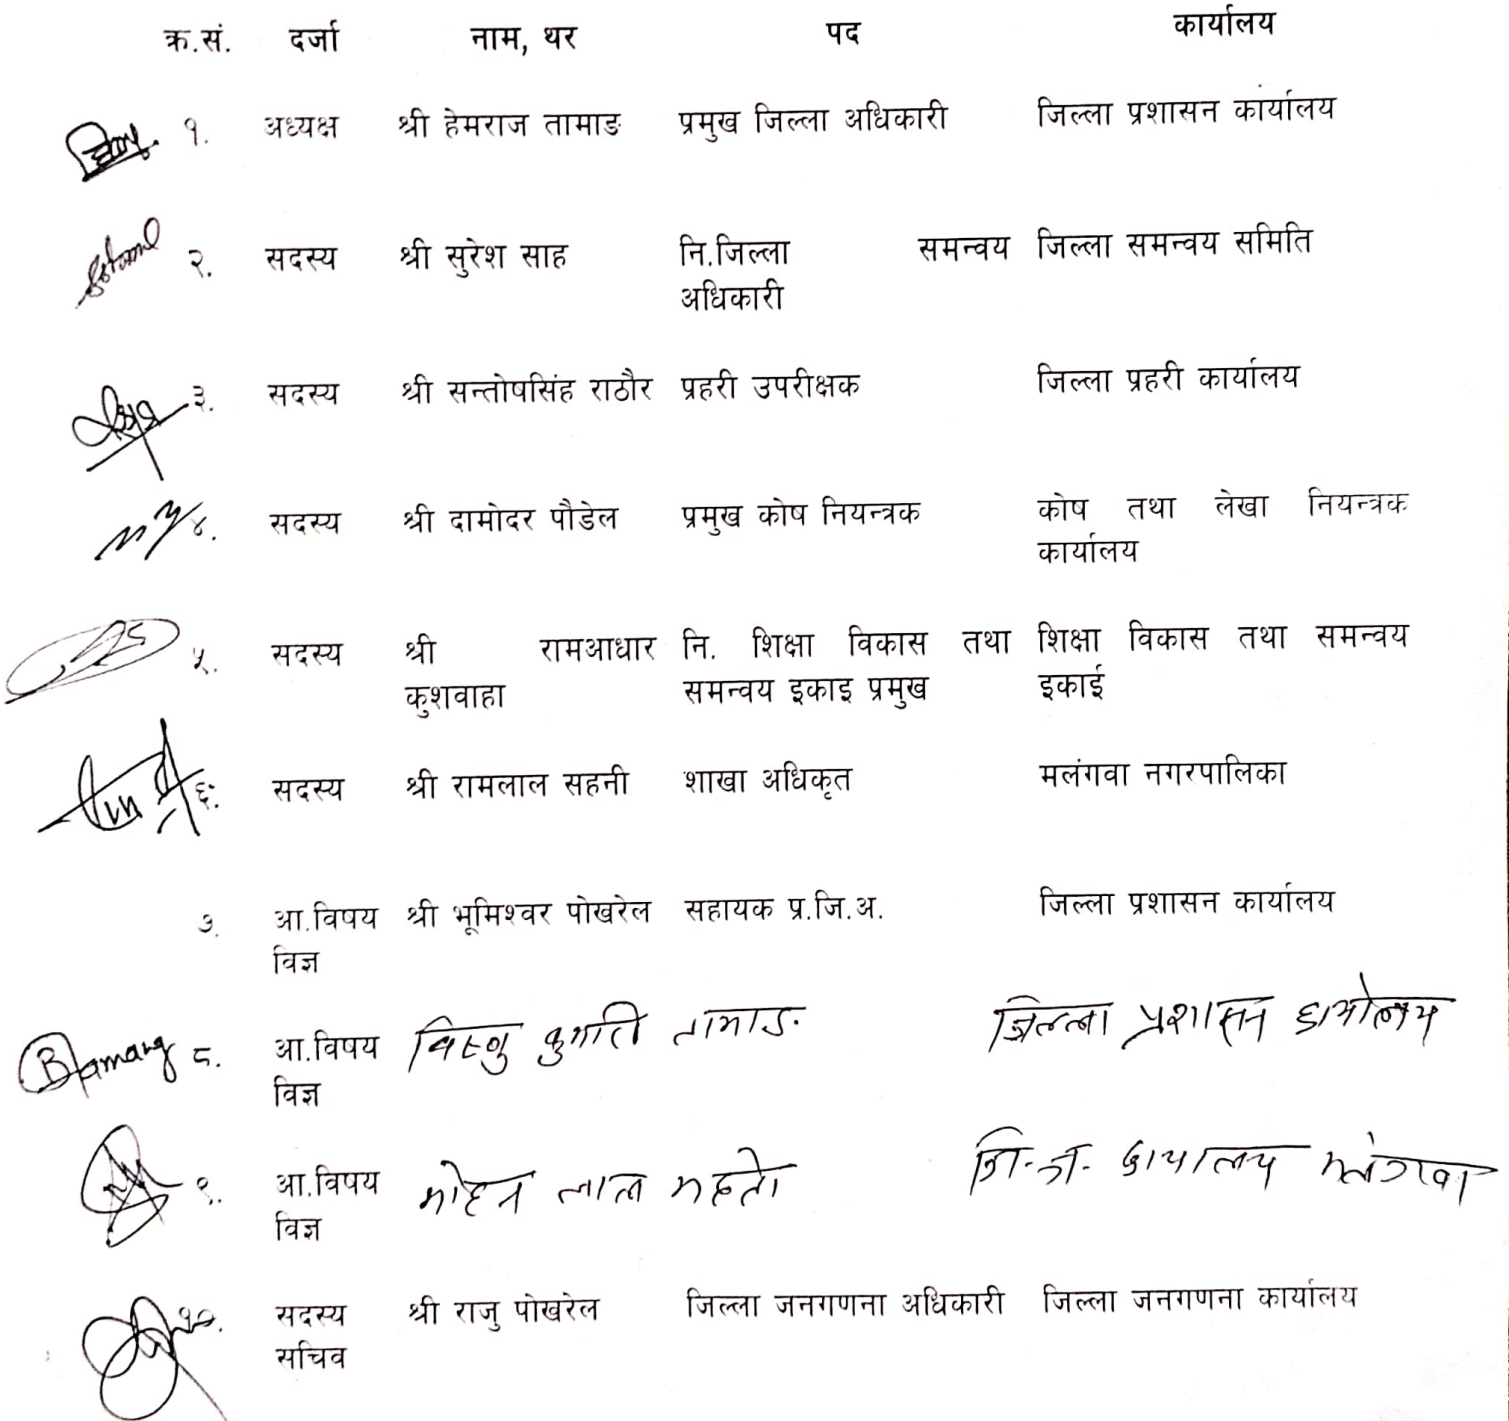 क्र.सं. दर्जा नाम, थर पद कार्यालय
१. अध्यक्ष श्री हेमराज तामाङ प्रमुख जिल्ला अधिकारी जिल्ला प्रशासन कार्यालय
२. सदस्य श्री सुरेश साह नि.जिल्ला समन्वय जिल्ला समन्वय समिति
अधिकारी
३. सदस्य श्री सन्तोषसिंह राठौर प्रहरी उपरीक्षक जिल्ला प्रहरी कार्यालय
४. सदस्य श्री दामोदर पौडेल प्रमुख कोष नियन्त्रक कोष तथा लेखा नियन्त्रक
कार्यालय
५. सदस्य श्री रामआधार नि. शिक्षा विकास तथा शिक्षा विकास तथा समन्वय
कुशवाहा समन्वय इकाइ प्रमुख इकाई
६. सदस्य श्री रामलाल सहनी शाखा अधिकृत मलंगवा नगरपालिका
७. आ.विषय श्री भूमिश्वर पोखरेल सहायक प्र.जि.अ. जिल्ला प्रशासन कार्यालय
विज्ञ
Btamang ८. आ.विषय विष्णु कुमारी तामाङ जिल्ला प्रशासन कार्यालय
विज्ञ
९. आ.विषय मोहन लाल महतो जि.ज. कार्यालय मलंगवा
विज्ञ
१०. सदस्य श्री राजु पोखरेल जिल्ला जनगणना अधिकारी जिल्ला जनगणना कार्यालय
सचिव